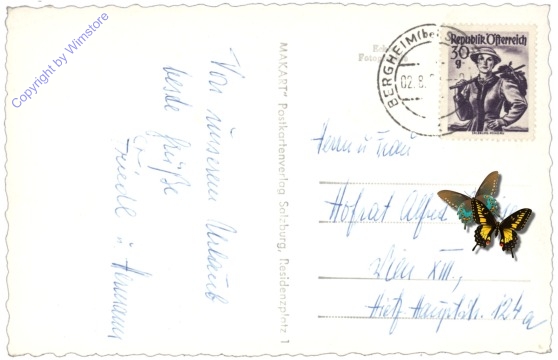 Copyright by Wimstore
Von unserem Urlaub
beste Grüße
Friedl u Hermann
MAKART Postkartenverlag Salzburg, Residenzplatz 1
BERGHEIM (bei S
02.8.
30
g
Republik Österreich
Herrn u Frau
Hofrat Alfred
Wien XIII.,
Hietz. Hauptstr. 124a